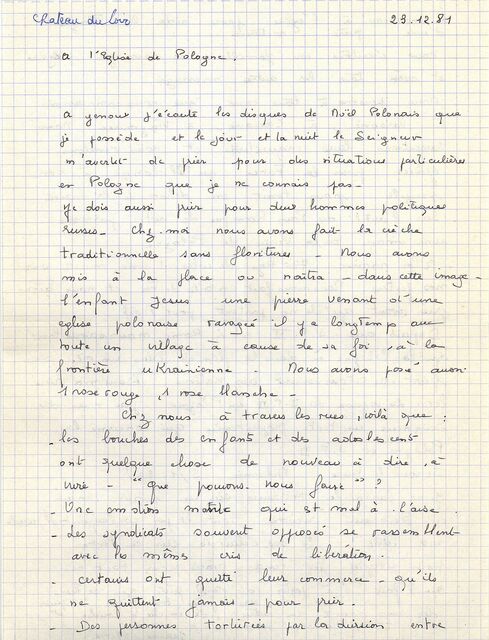 Chateau du Loir 23.12.81
a l'Eglise de Pologne.
a genoux j'écoute les disques de Noël Polonais que
je possède et le jour et la nuit le Seigneur
m'avertit de prier pour des situations particulières
en Pologne que je ne connais pas-
Je dois aussi prier pour deux hommes politiques
russes- Chez moi nous avons fait la crèche
traditionnelle sans floritures - Nous avons
mis à la place ou naîtra - dans cette image -
l'enfant Jesus une pierre venant d'une
eglise polonaise ravagée il y a longtemps avec
toute un village à cause de sa foi, à la
frontière ukrainienne. Nous avons posé aussi
1 rose rouge, 1 rose blanche-
Chez nous à travers les rues, voilà que:
- les bouches des enfants et des adolescents
ont quelque chose de nouveau à dire, à
- "que pouvons-nous faire"?
- Une emotion qui est mal à l'aise.
- Des syndicats souvent opposés se rassemblent
avec les mêmes cris de libération.
- certains ont quitté leur commerce - qu'ils
ne quittent jamais - pour prier.
- Des personnes torturées par la division entre